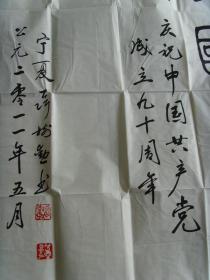 庆祝中国共产党
成立九十周年
宁夏
书
公元二零一一年五月